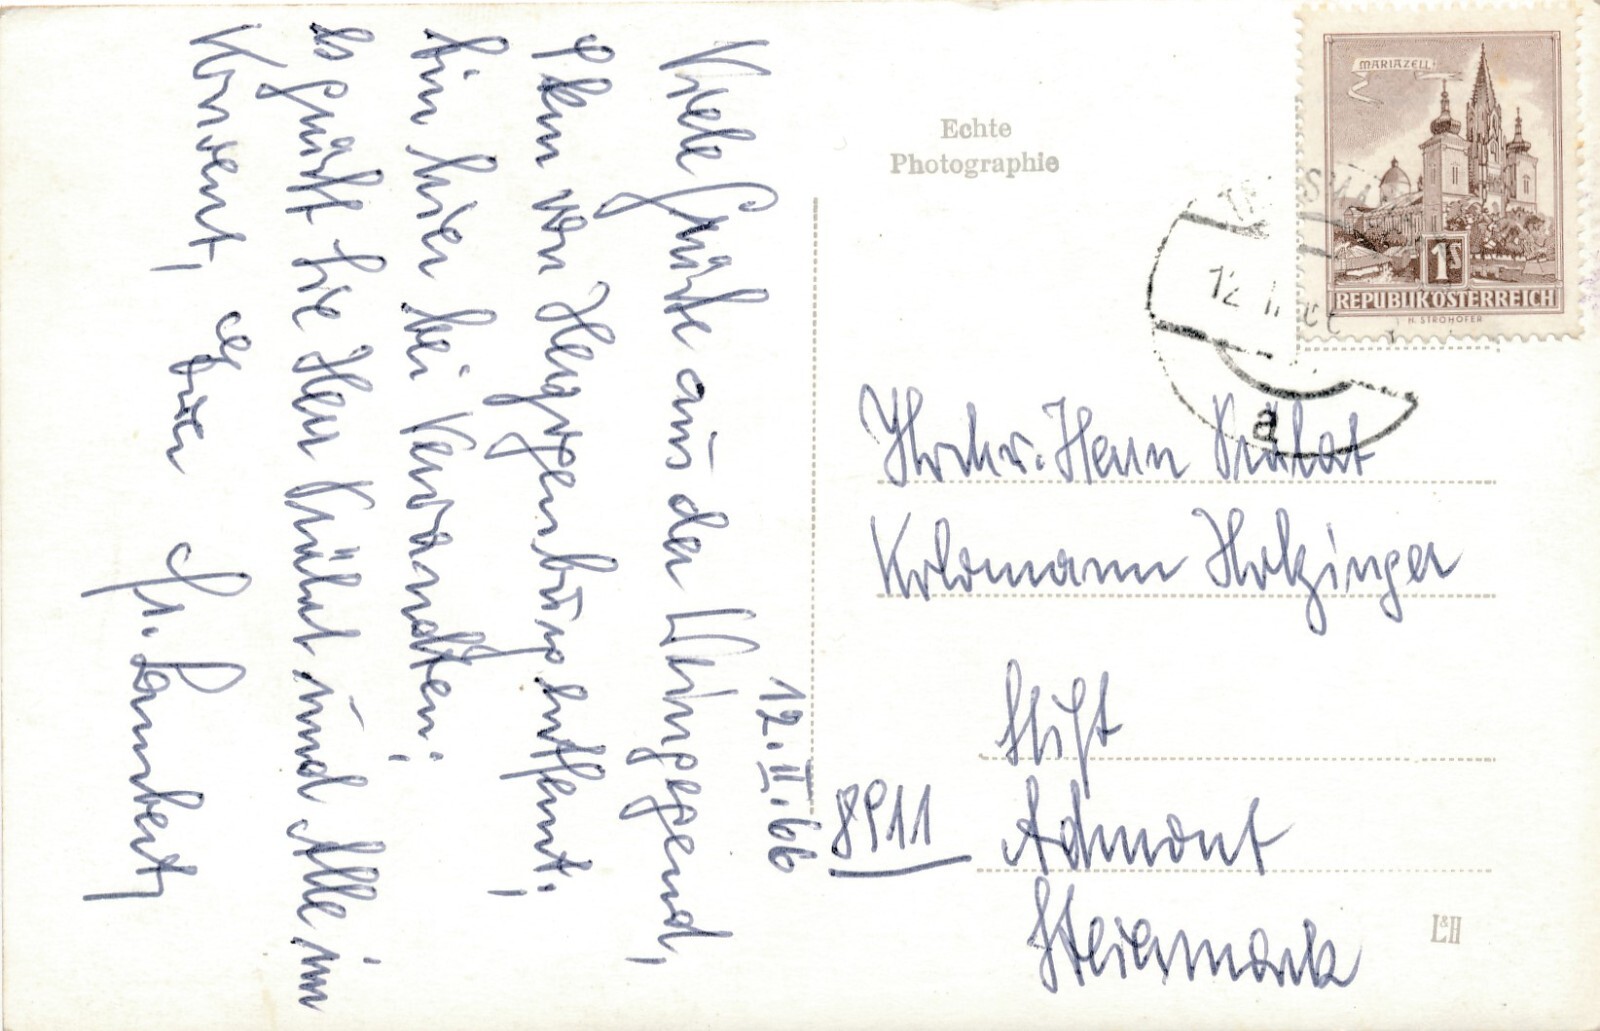 12.II.66
Viele Grüße aus der Umgegend,
9 km von Herzogenburg entfernt,
bin hier bei Verwandten;
es grüßt Sie Herr Prälat und Alle im
Konvent, Ihr
Fr. Lambert
Echte
Photographie
MARIAZELL
1S
REPUBLIK ÖSTERREICH
H. STROHOFER
12. II.
a
Hochw. Herrn Prälat
Kolomann Holzinger
Stift
8911 Admont
Steiermark
L&H